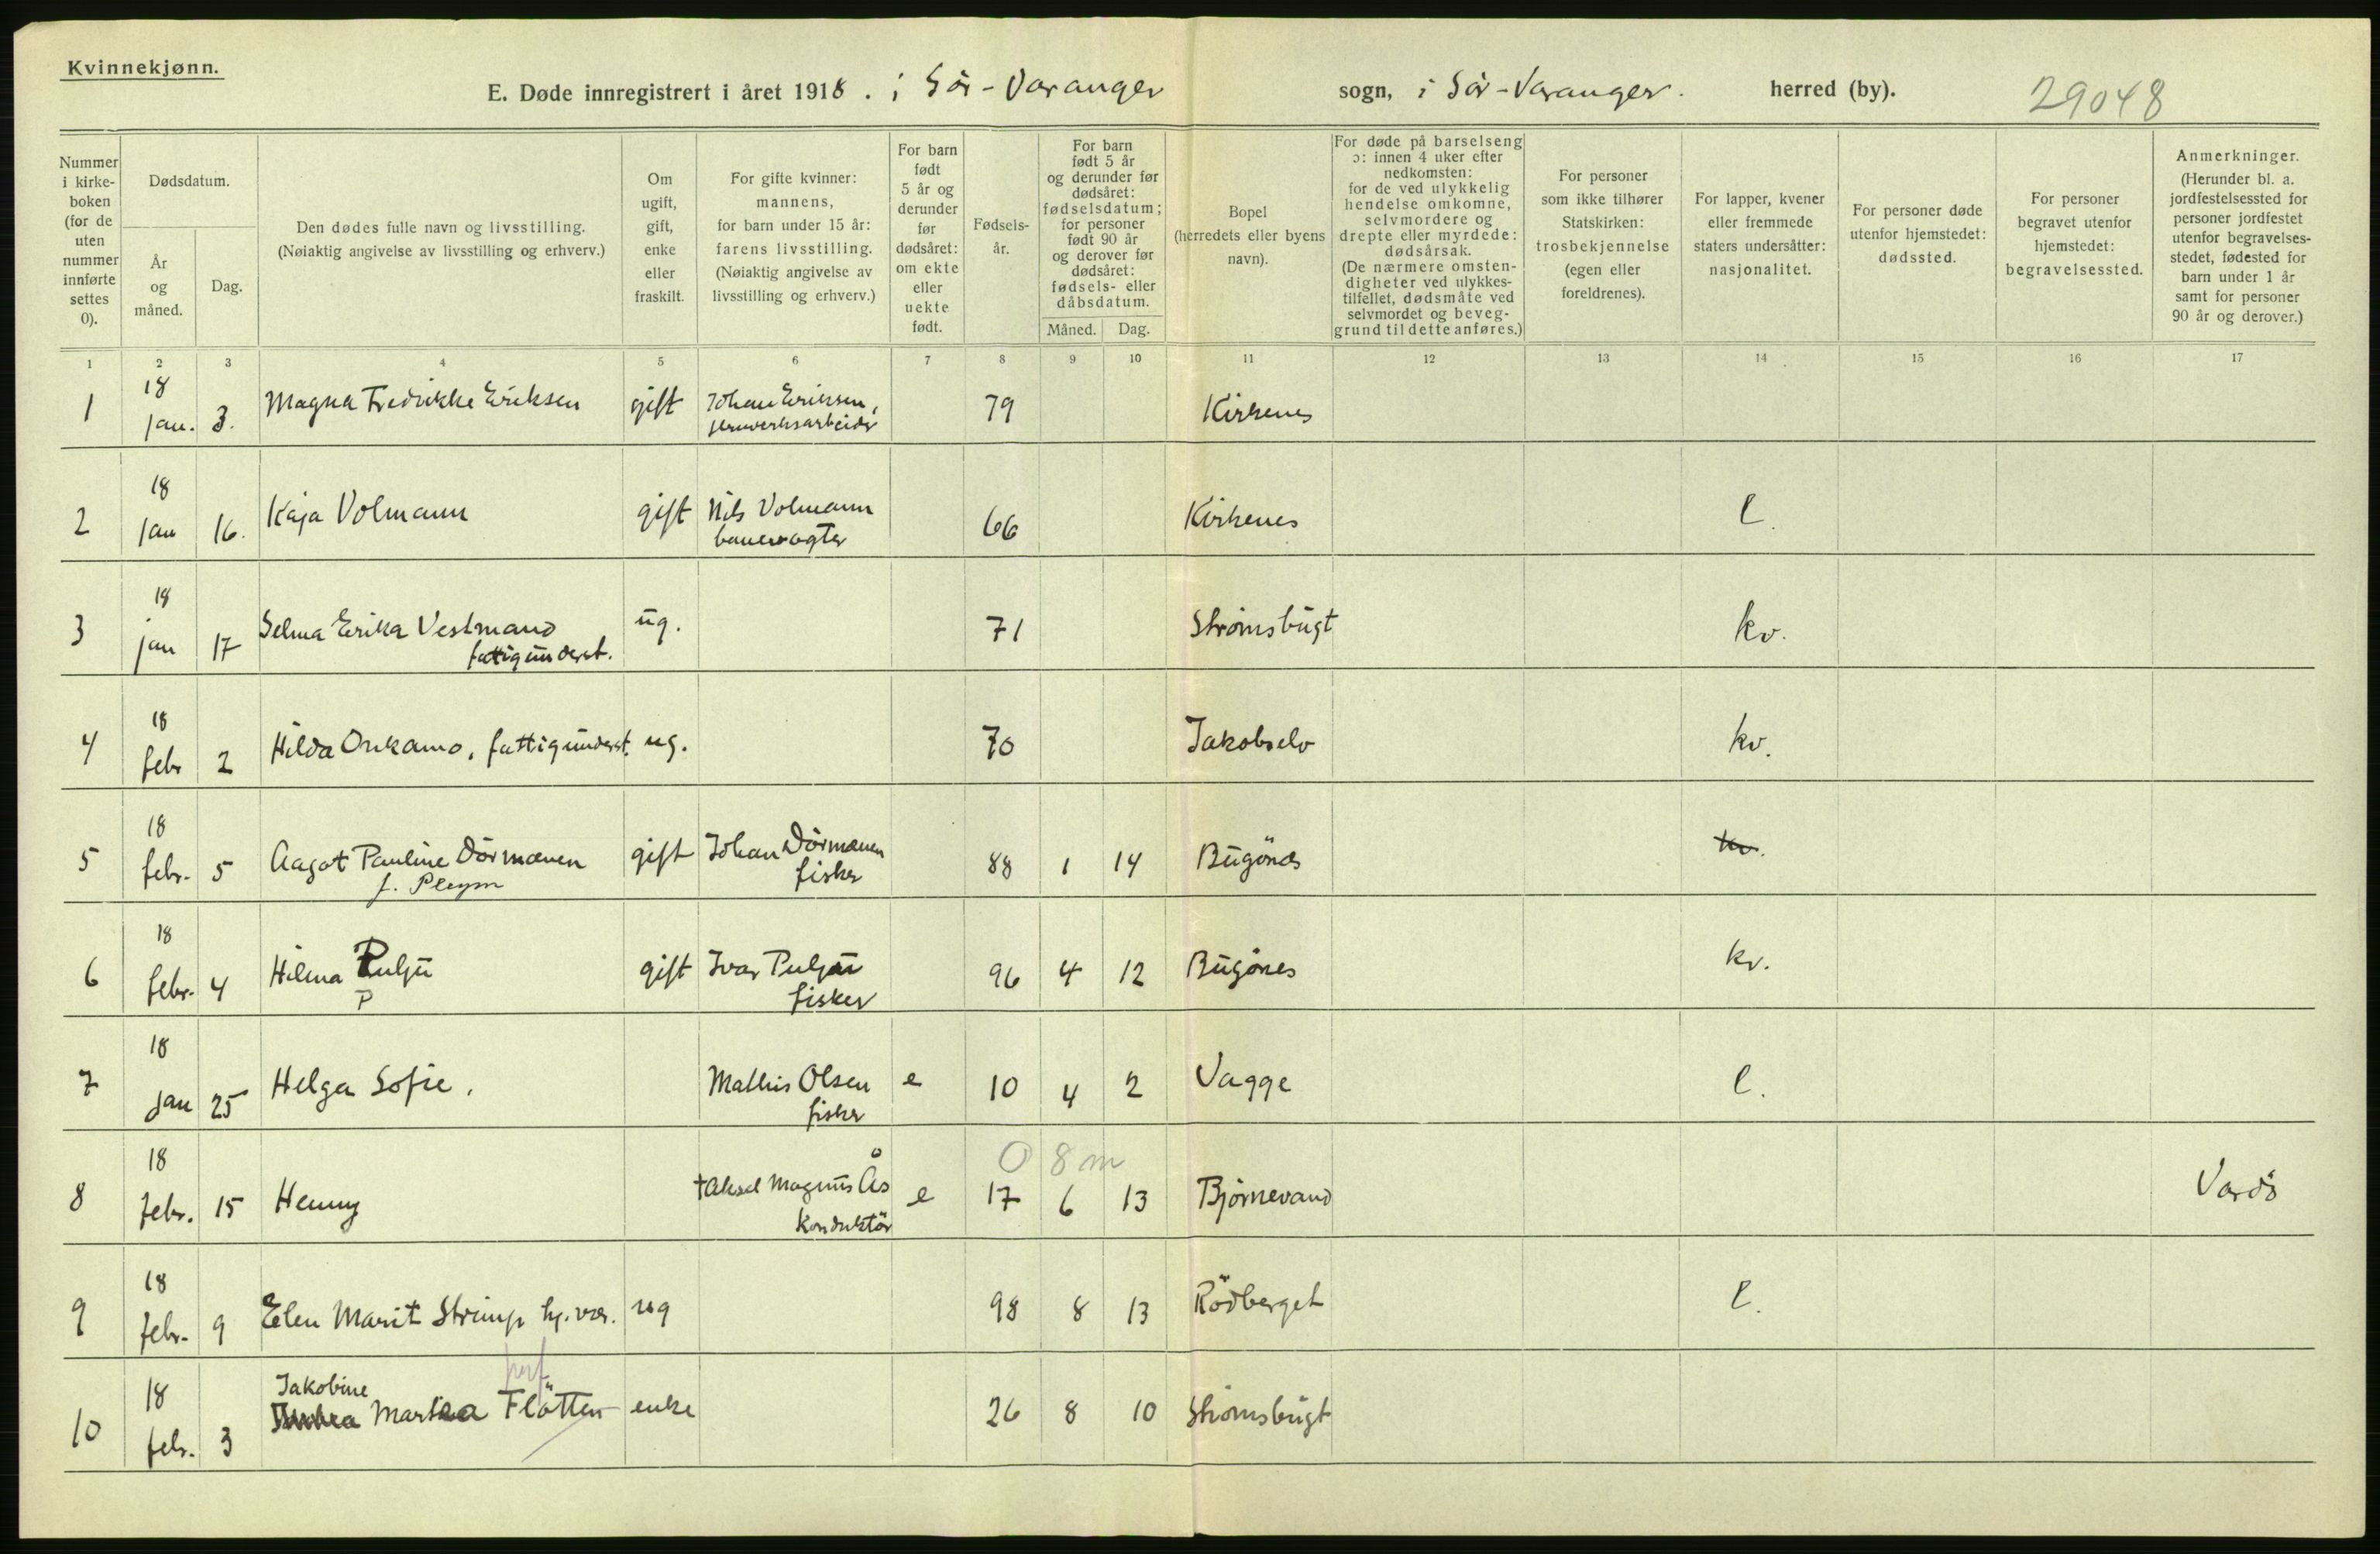 Kvinnekjønn.
E. Døde innregistrert i året 1918. i Sör-Varanger sogn, i Sör-Varanger. herred (by). 29048
Nummer i kirke-boken (for de uten nummer innførte settes 0).
Dødsdatum.
År og måned.
Dag.
Den dødes fulle navn og livsstilling.
(Nøiaktig angivelse av livsstilling og erhverv.)
Om ugift, gift, enke eller fraskilt.
For gifte kvinner: mannens, for barn under 15 år: farens livsstilling.
(Nøiaktig angivelse av livsstilling og erhverv.)
For barn født 5 år og derunder før dødsåret: om ekte eller uekte født.
Fødsels-år.
For barn født 5 år og derunder før dødsåret: fødselsdatum; for personer født 90 år og derover før dødsåret: fødsels- eller dåbsdatum.
Måned. Dag.
Bopel (herredets eller byens navn).
For døde på barselseng ɔ: innen 4 uker efter nedkomsten: for de ved ulykkelig hendelse omkomne, selvmordere og drepte eller myrdede: dødsårsak.
(De nærmere omsten-digheter ved ulykkes-tilfellet, dødsmåte ved selvmordet og beveg-grund til dette anføres.)
For personer som ikke tilhører Statskirken: trosbekjennelse (egen eller foreldrenes).
For lapper, kvener eller fremmede staters undersåtter: nasjonalitet.
For personer døde utenfor hjemstedet: dødssted.
For personer begravet utenfor hjemstedet: begravelsessted.
Anmerkninger.
(Herunder bl. a. jordfestelsessted for personer jordfestet utenfor begravelses-stedet, fødested for barn under 1 år samt for personer 90 år og derover.)
1 2 3 4 5 6 7 8 9 10 11 12 13 14 15 16 17
1 18 jan. 3. Magna Fredrikke Eriksen gift Johan Eriksen, 79 Kirkenes
2 18 jan 16. Kaja Volmann gift Nils Volmann banevogter 66 Kirkenes l.
3 18 jan 17 Selma Erika Vestmand fattigunderst. ug. 71 Strömsbugt kv.
4 18 febr 2 Hilda Onkamo, fattigunderst. ug. 70 Jakobselv kv.
5 18 febr. 5 Aagot Pauline Dörmænen f. Pleym gift Johan Dörmænen fisker 88 1 14 Bugönes kv.
6 18 febr. 4 Hilma Pulju P gift Ivar Pulju fisker 96 4 12 Bugönes kv.
7 18 jan 25 Helga Sofie. Mathis Olsen fisker e 10 4 2 Vagge l.
8 18 febr. 15 Henny †Aksel Magnus Ås konduktör e 0 8 m 17 6 13 Björnevand Vardö
9 18 febr. 9 Elen Marit Strimp hj. vær. ug 98 8 13 Rödberget l.
10 18 febr. 3 Jakobine Flötten enke 26 8 10 Strömsbugt